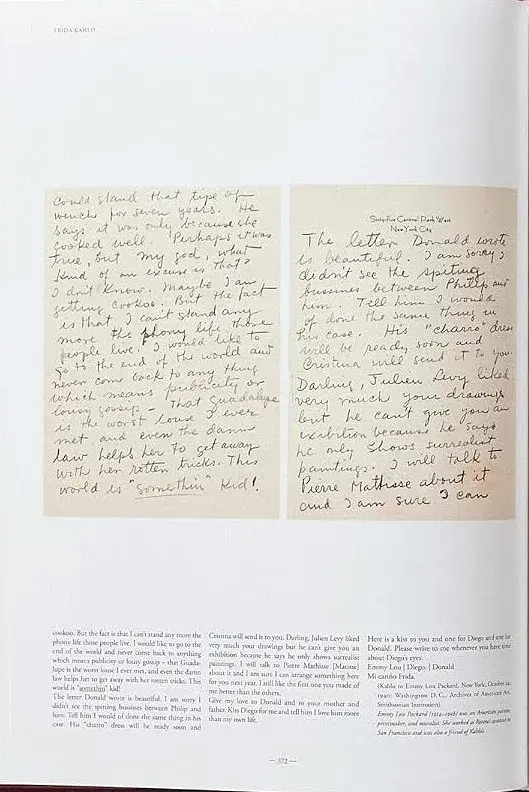 FRIDA KAHLO
could stand that tipe of
wench for seven years. He
says it was only because she
cooked well. Perhaps it was
true, but my god, what
kind of an excuse is that?
I don't know. Maybe I am
getting cookoo. But the fact
is that I can't stand any
more the phony life those
people live. I would like to
go to the end of the world and
never come back to any thing
which means publicity or
lousy gossip – That Guadalupe
is the worst louse I ever
met, and even the damn
law helps her to get away
with her rotten tricks. This
world is "somethin" Kid!
Sixty-five Central Park West
New York City
The letter Donald wrote
is beautiful. I am sorry I
didn't see the spiting
bussines between Philip and
him. Tell him I would
of done the same thing in
his case. His "charro" dress
will be ready soon and
Cristina will send it to you.
Darling, Julien Levy liked
very much your drawings
but he can't give you an
exibition because he says
he only shows surrealist
paintings. I will talk to
Pierre Mathisse about it
and I am sure I can
cookoo. But the fact is that I can't stand any more the
phony life those people live. I would like to go to the
end of the world and never come back to anything
which means publicity or lousy gossip – that Guada-
lupe is the worst louse I ever met, and even the damn
law helps her to get away with her rotten tricks. This
world is "somethin" kid!
The letter Donald wrote is beautiful. I am sorry I
didn't see the spitting bussines between Philip and
him. Tell him I would of done the same thing in his
case. His "charro" dress will be ready soon and
Cristina will send it to you. Darling, Julien Levy liked
very much your drawings but he can't give you an
exhibition because he says he only shows surrealist
paintings. I will talk to Pierre Mathisse (Matisse)
about it and I am sure I can arrange something here
for you next year. I still like the first one you made of
me better than the others.
Give my love to Donald and to your mother and
father. Kiss Diego for me and tell him I love him more
than my own life.
Here is a kiss to you and one for Diego and one for
Donald. Please write to me whenever you have time
about Diego's eyes.
Emmy Lou | Diego, | Donald
Mi cariño Frida.
(Kahlo to Emmy Lou Packard, New York, October 24,
1940; Washington D. C., Archives of American Art,
Smithsonian Institution)
Emmy Lou Packard (1914–1998) was an American painter,
printmaker, and muralist. She worked as Rivera's assistant in
San Francisco and was also a friend of Kahlo.
— 372 —